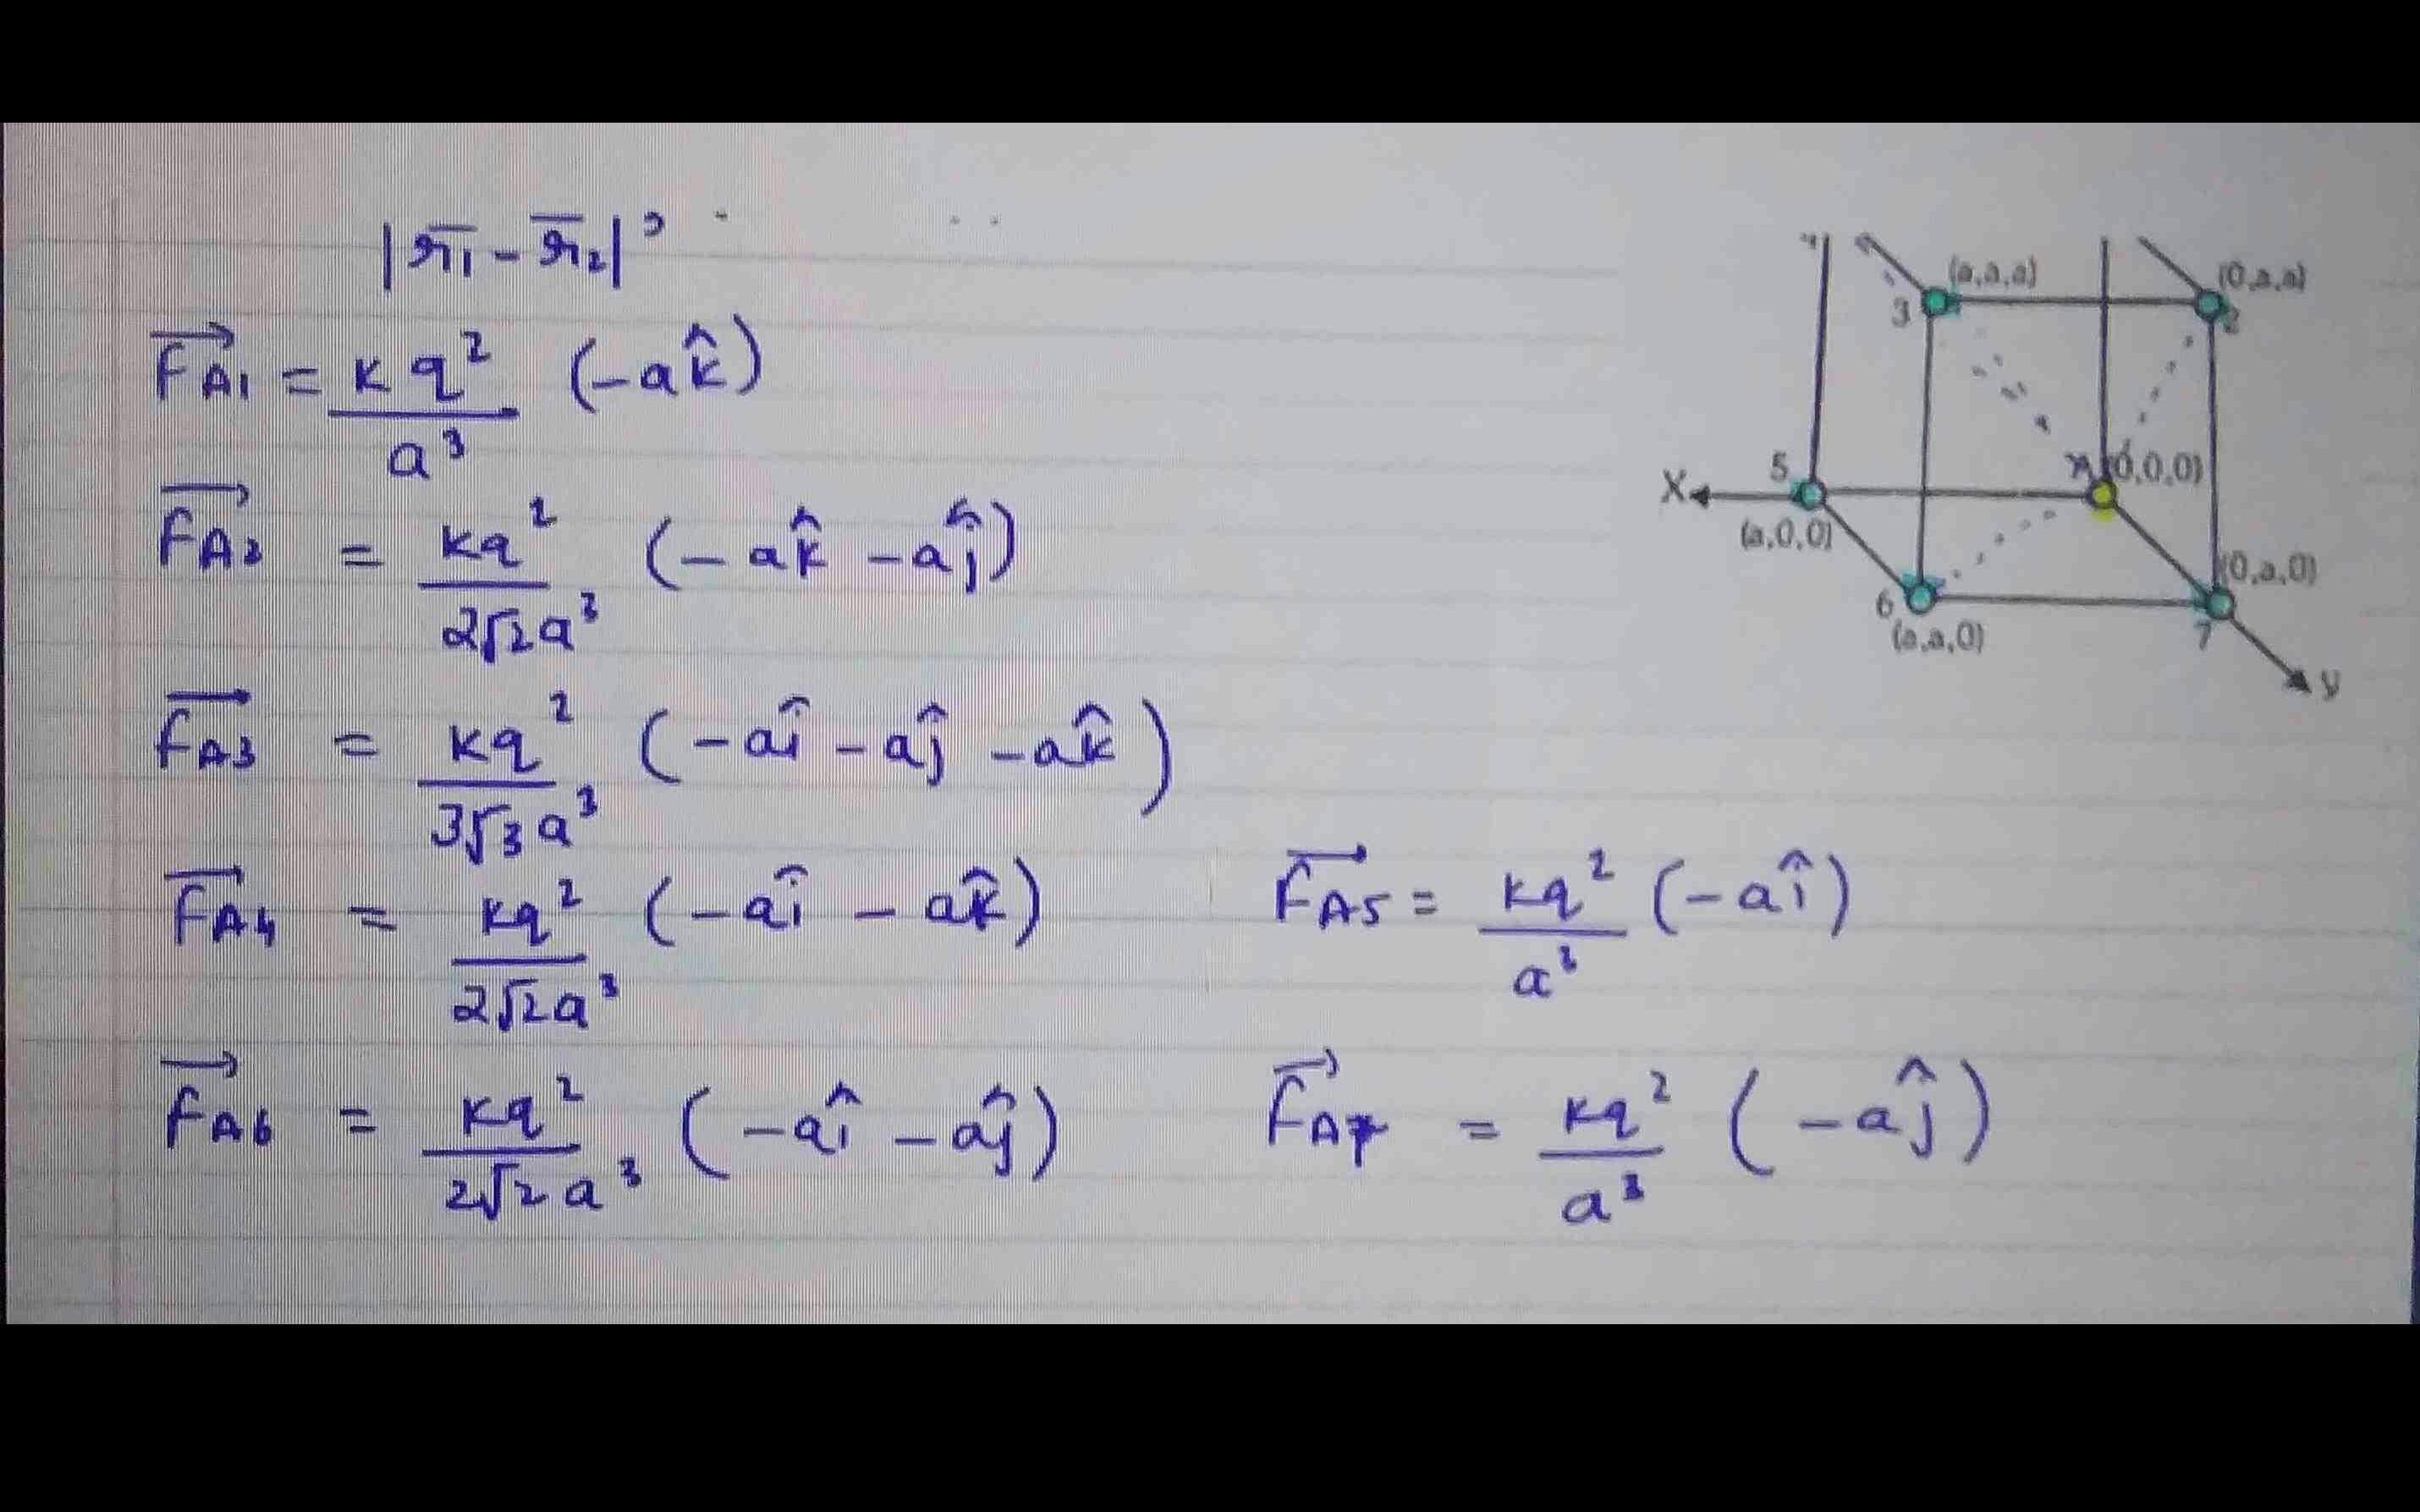 |r̄₁ - r̄₂|³
F⃗A1 = kq²/a³ (-ak̂)
F⃗A2 = kq²/2√2a³ (-ak̂ - aĵ)
F⃗A3 = kq²/3√3a³ (-aî - aĵ - ak̂)
F⃗A4 = kq²/2√2a³ (-aî - ak̂)
F⃗A5 = kq²/a³ (-aî)
F⃗A6 = kq²/2√2a³ (-aî - aĵ)
F⃗A7 = kq²/a³ (-aĵ)
(a,a,a)
(0,a,a)
3
2
5
A
(0,0,0)
X
(a,0,0)
(0,a,0)
6
(a,a,0)
7
y